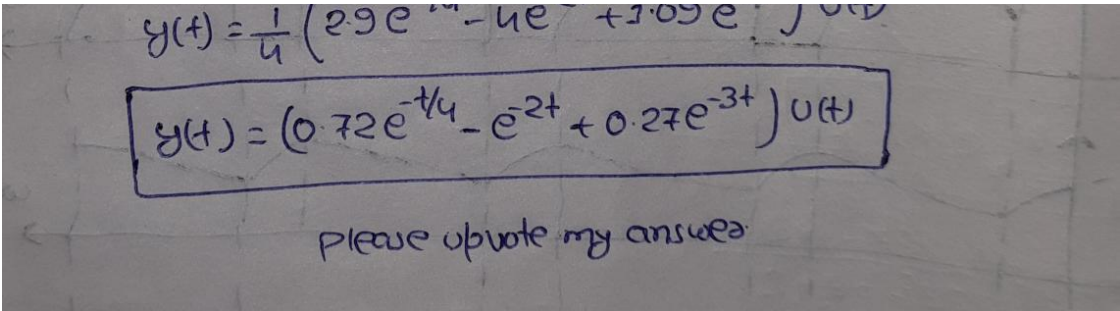 y(t) = 1/4 (2.9e - 4e + 1.09e ) U(t)
y(t) = (0.72e^{-t/4} - e^{-2t} + 0.27e^{-3t}) U(t)
please upvote my answer.